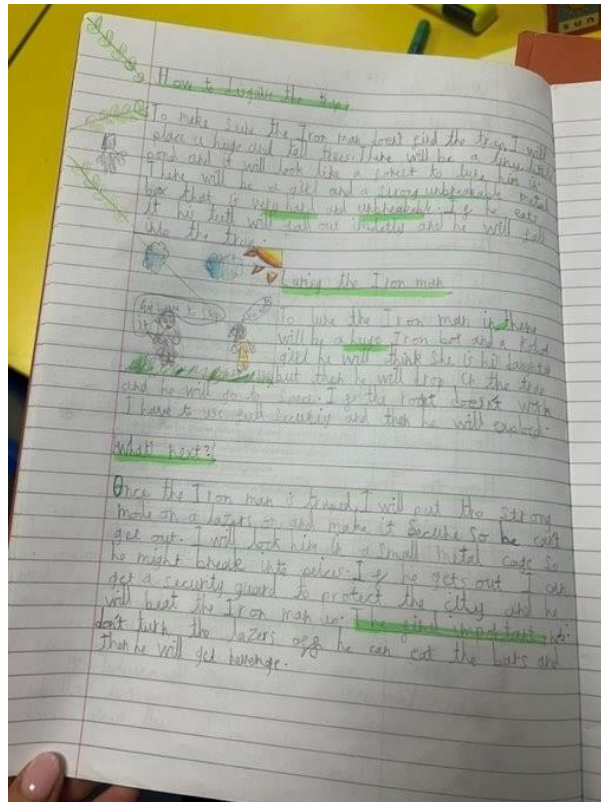 sun
How to the
To make sure the Iron man doesn't find the trap, I will
place a huge and tall trees. There will be a tiny little
pond and it will look like a to lure him in.
There will be a girl and a strong unbreakable metal
box that is very hard and unbreakable. If he eats
it his teeth will fall out and he will fall
into the
the Iron man
To lure the Iron man in there
will be a huge Iron bot and a
girl he will think she is his
but then he will drop in the
and he will go to . If the doesn't work
I have to use and then he will
What next?
Once the Iron man is I will put the strong
mode on a lazers on and make it secure so he can't
get out. I will lock him in a small metal cage so
he might break into . If he gets out I can
get a security guard to protect the city and he
will beat the Iron man . The important
don't turn the lazers off he can eat the bars and
then he will get revenge.